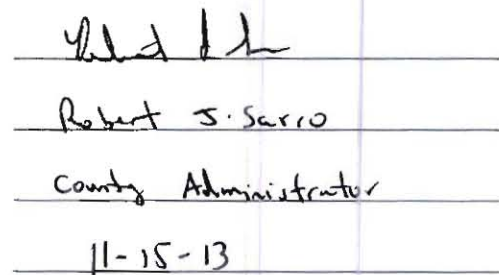 Robert J. Sarro
County Administrator
11-15-13